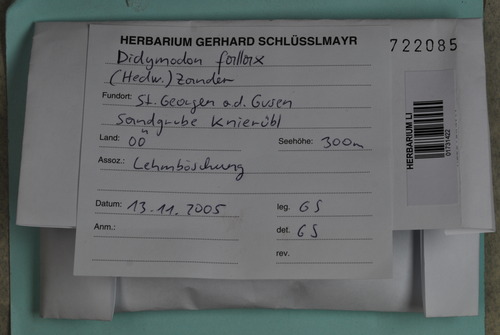 HERBARIUM GERHARD SCHLÜSSLMAYR
722085
Didymodon fallax
(Hedw.) Zander
Fundort: St. Georgen a.d. Gusen
Sandgrube Knierübl
Land: OÖ Seehöhe: 300m
Assoz.: Lehmböschung
Datum: 13.11.2005 leg. GS
Anm.: det. GS
rev.
HERBARIUM LI
01731422